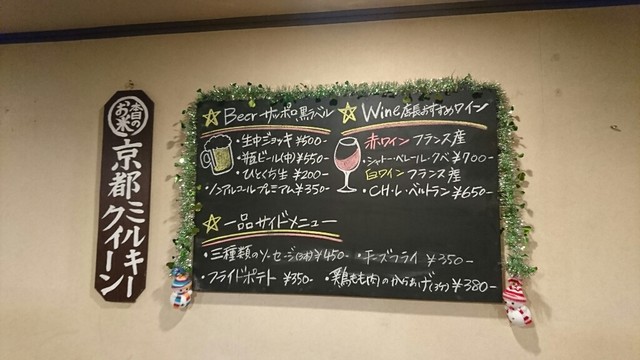 本日のお米
京都ミルキークイーン
☆Beer サッポロ黒ラベル
・生中ジョッキ ¥500-
・瓶ビール(中) ¥550-
・ひとくち生 ¥200-
・ノンアルコールプレミアム ¥350-
☆Wine 店長おすすめワイン
赤ワイン フランス産
・シャトー・ペレール・クベ ¥700-
白ワイン フランス産
・CH・レ・ベルトラン ¥650-
☆一品サイドメニュー
・三種類のソーセージ(3本) ¥450-
・チーズフライ ¥350-
・フライドポテト ¥350-
・鶏もも肉のからあげ(3ケ) ¥380-